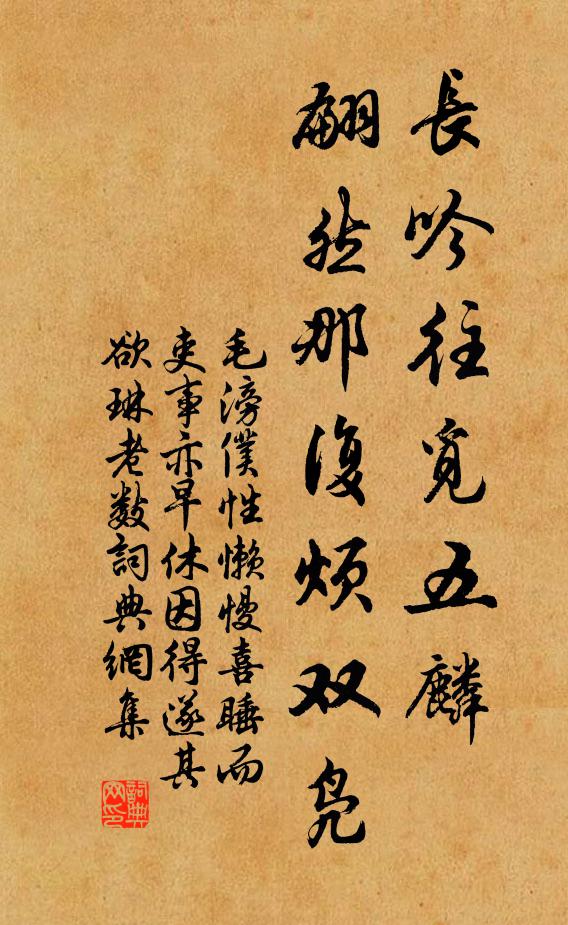 長吟往覓五麟
翩然那復煩双凫
毛滂僕性懒慢喜睡而
吏事亦早休因得遂其
欲琳老数詞典網集
詞典网印